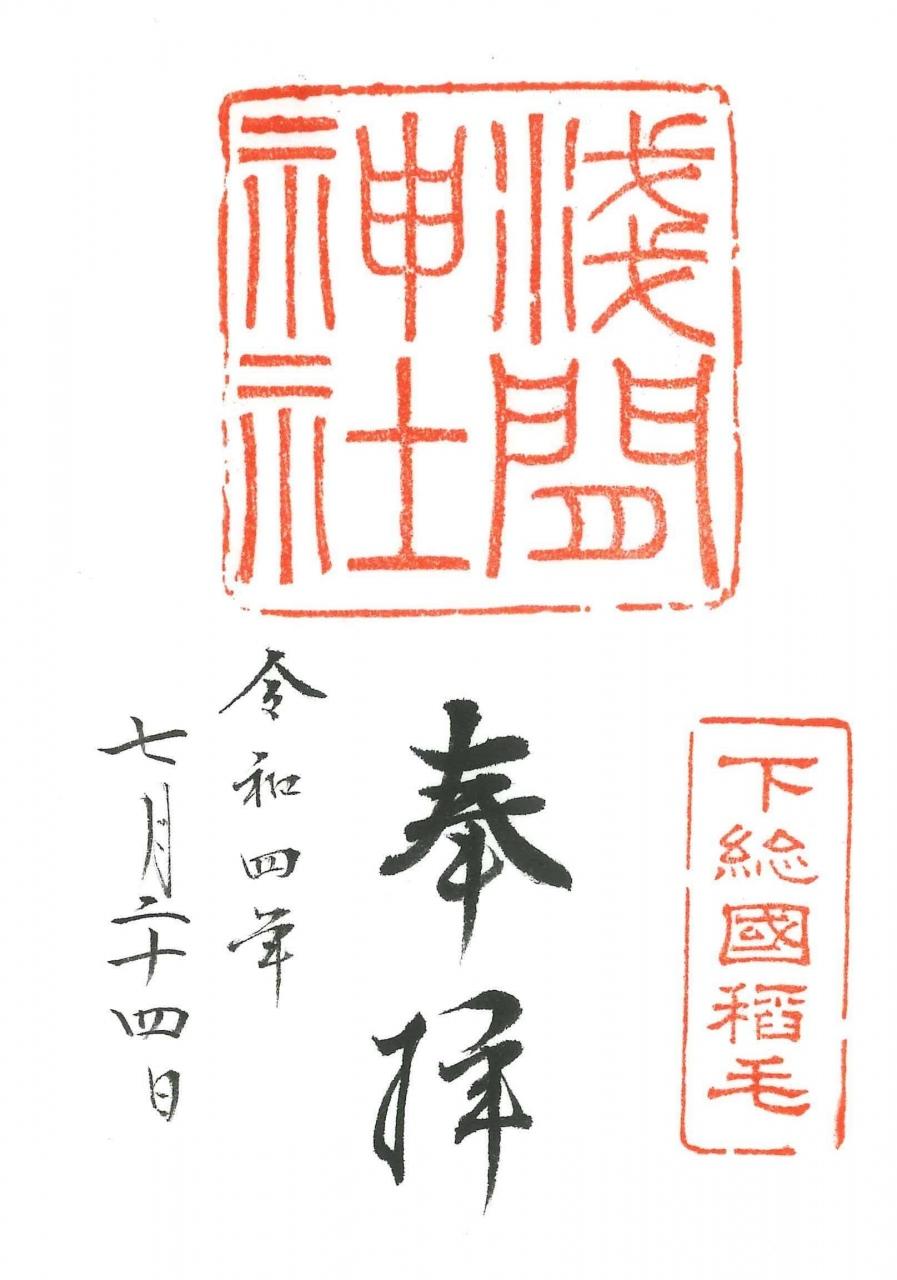 淺間
神社
下総國稻毛
奉拝
令和四年
七月二十四日